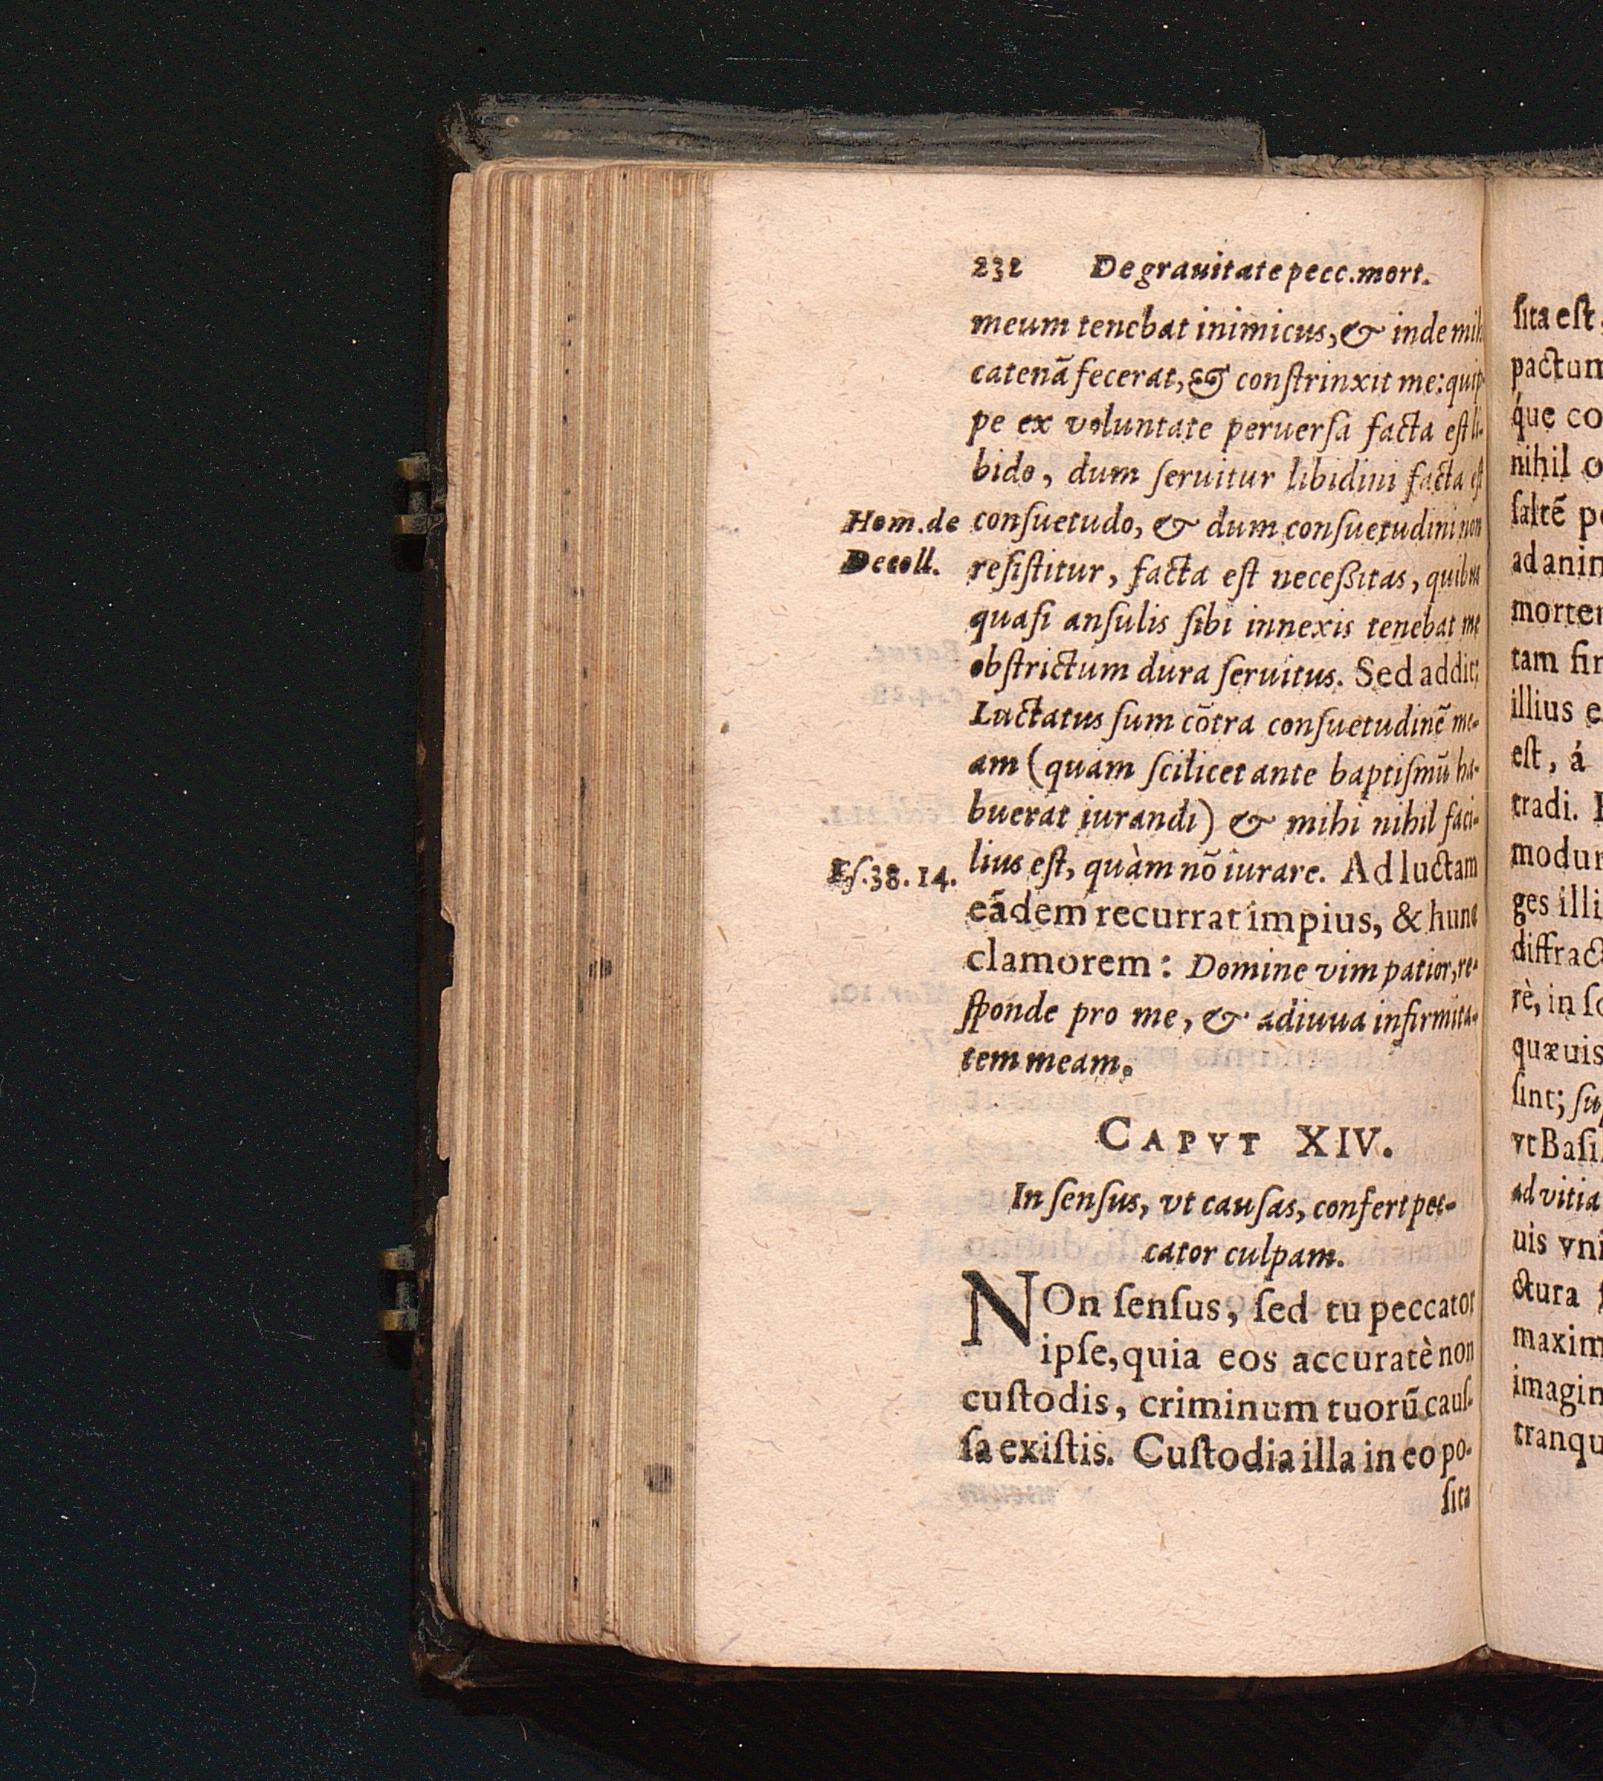 232 De grauitate pecc. mort.
meum tenebat inimicus, & inde mihi
catenã fecerat, & conſtrinxit me: quip-
pe ex voluntate peruerſa facta eſt li-
bido, dum ſeruitur libidini facta eſt
Hom. de
Decoll.
conſuetudo, & dum conſuetudini non
reſiſtitur, facta eſt neceßitas, quibus
quaſi anſulis ſibi innexis tenebat me
obſtrictum dura ſeruitus. Sed addit;
Luctatus ſum cõtra conſuetudinẽ me-
am (quam ſcilicet ante baptiſmũ ha-
buerat iurandi) & mihi nihil faci-
Eſ. 38. 14.
lius eſt, quàm nõ iurare. Ad luctam
eãdem recurrat impius, & hunc
clamorem: Domine vim patior, re-
ſponde pro me, & adiuua infirmita-
tem meam.
CAPVT XIV.
In ſenſus, vt cauſas, confert pec-
cator culpam.
NOn ſenſus, ſed tu peccator
ipſe, quia eos accuratè non
cuſtodis, criminum tuorũ cauſ-
ſa exiſtis. Cuſtodia illa in eo po-
ſita
ſita eſt,
pactum
que co
nihil o
ſaltẽ p
ad anim
morte
tam ſi
illius e
eſt, á
tradi.
modu
ges illi
diffrac
rè, in ſo
quæuis
ſint; ſu
vt Baſi
ad vitia
uis vni
ctura
maxim
imagin
tranqu